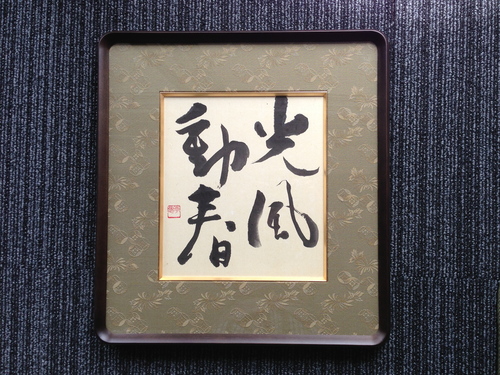 光風
動春